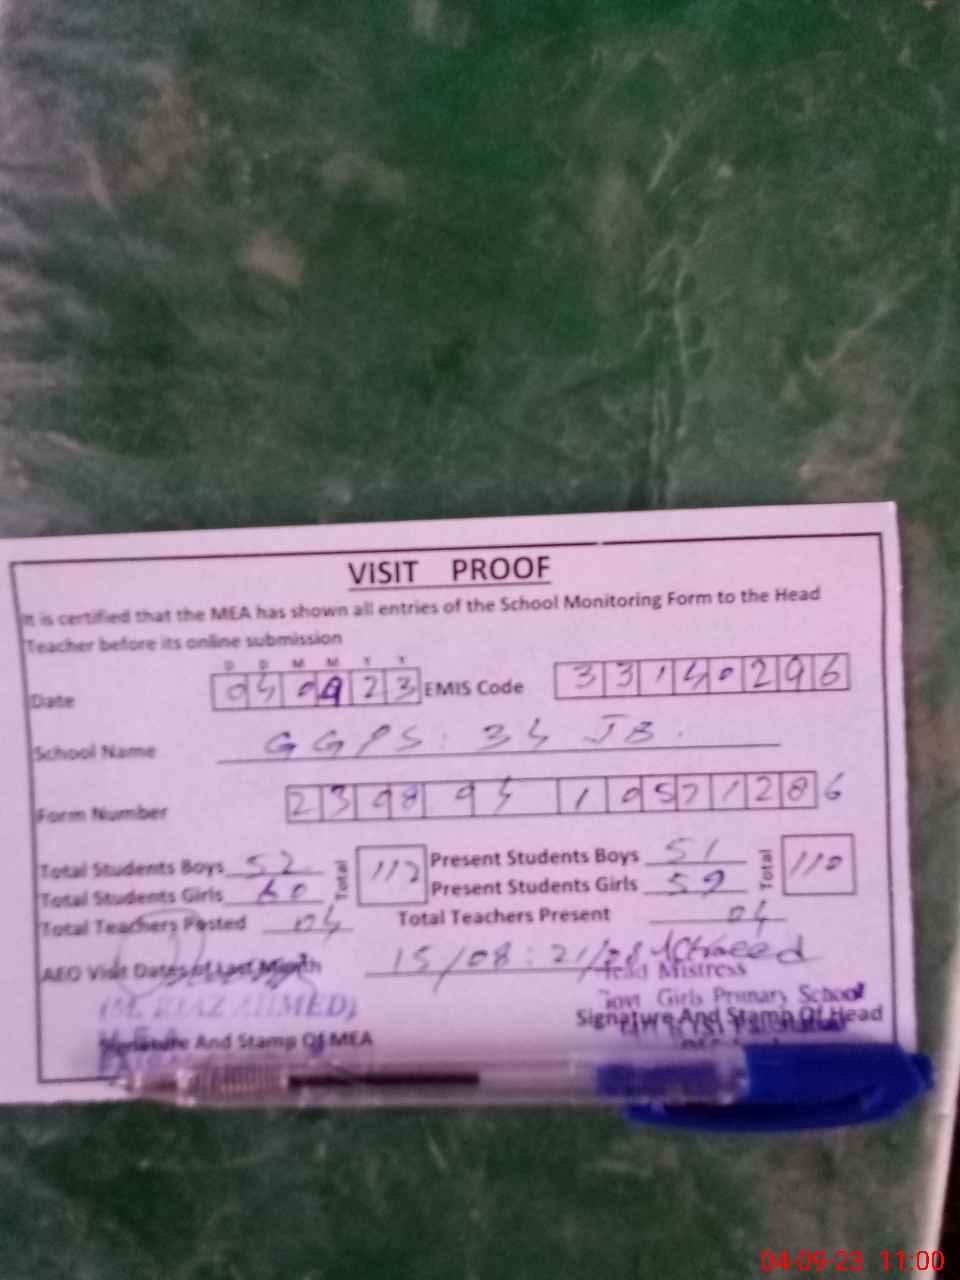 VISIT PROOF
It is certified that the MEA has shown all entries of the School Monitoring Form to the Head
Teacher before its online submission
D D M M Y Y
Date 04 09 23 EMIS Code 33140296
School Name GGPS. 34 JB.
Form Number 2398 94 10571286
Total Students Boys 52 Total 112 Present Students Boys 51 Total 110
Total Students Girls 60 Present Students Girls 59
Total Teachers Posted 04 Total Teachers Present 04
AEO Visit Dates of Last Month 15/08 : 21/08
Head Mistress
(M. RIAZ AHMED) Govt Girls Primary School
Signature And Stamp Of Head
Signature And Stamp Of MEA
04-09-23 11:00